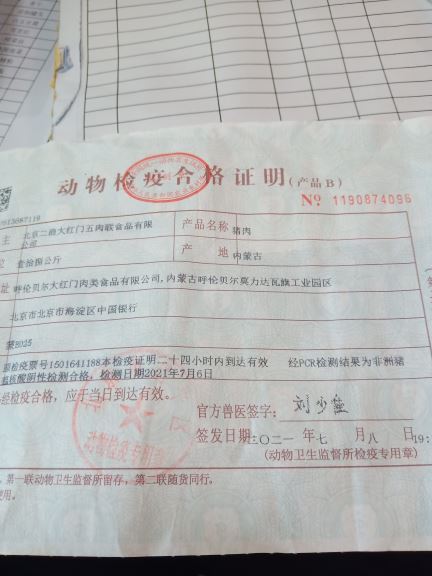 动物检疫合格证明(产品B)
№ 1190874096
主 北京二商大红门五肉联食品有限公司
产品名称 猪肉
位 壹拾捌公斤
产 地 内蒙古
址 呼伦贝尔大红门肉类食品有限公司,内蒙古呼伦贝尔莫力达瓦旗工业园区
北京市北京市海淀区中国银行
蒙B025
票检疫票号1501641188本检疫证明二十四小时内到达有效 经PCR检测结果为非洲猪
瘟核酸阴性检测合格,检测日期2021年7月6日
经检疫合格,应于当日到达有效。
官方兽医签字:
签发日期:二〇二一 年七 月八 日19:
(动物卫生监督所检疫专用章)
第一联动物卫生监督所留存,第二联随货同行。
使用。
动物检疫专用章